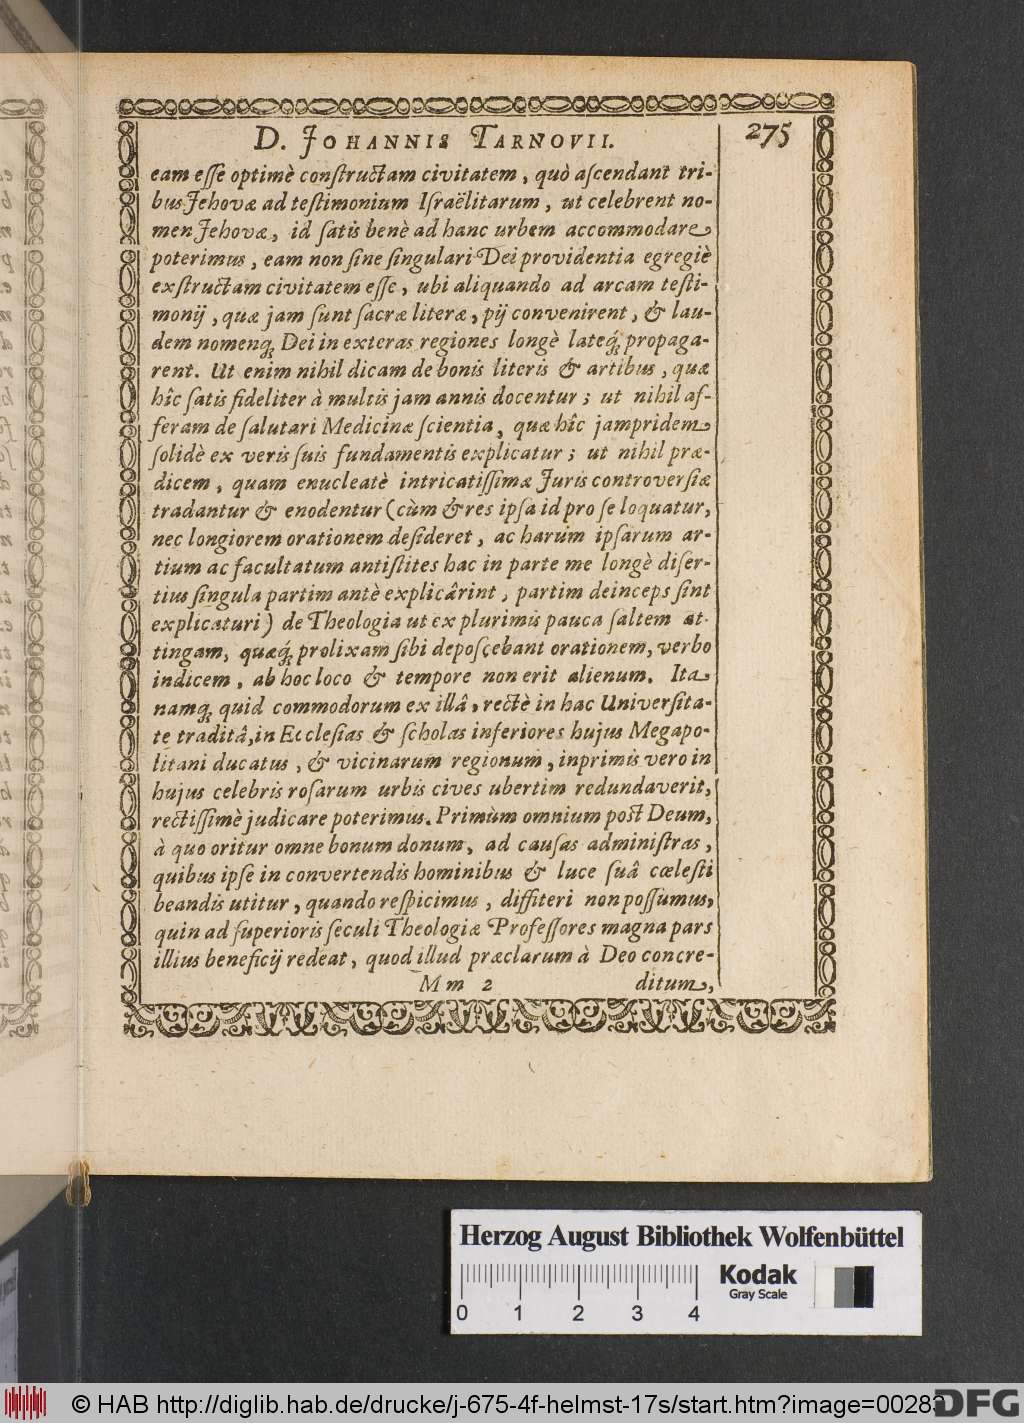 D. JOHANNIS TARNOVII. 275
eam eſſe optimè conſtructam civitatem, quò aſcendant tri-
bus Jehovæ ad teſtimonium Iſraëlitarum, ut celebrent no-
men Jehovæ, id ſatis benè ad hanc urbem accommodare
poterimus, eam non ſine ſingulari Dei providentia egregiè
exſtructam civitatem eſſe, ubi aliquando ad arcam teſti-
monij, quæ jam ſunt ſacræ literæ, pij convenirent, & lau-
dem nomenq́; Dei in exteras regiones longè lateq́; propaga-
rent. Ut enim nihil dicam de bonis literis & artibus, quæ
hîc ſatis fideliter à multis jam annis docentur; ut nihil af-
feram de ſalutari Medicinæ ſcientia, quæ hîc jampridem
ſolidè ex veris ſuis fundamentis explicatur; ut nihil præ-
dicem, quam enucleatè intricatiſſimæ Juris controverſiæ
tradantur & enodentur (cùm & res ipſa id pro ſe loquatur,
nec longiorem orationem deſideret, ac harum ipſarum ar-
tium ac facultatum antiſtites hac in parte me longè diſer-
tius ſingula partim antè explicârint, partim deinceps ſint
explicaturi) de Theologia ut ex plurimis pauca ſaltem at-
tingam, quæq́; prolixam ſibi depoſcebant orationem, verbo
indicem, ab hoc loco & tempore non erit alienum. Ita
namq́; quid commodorum ex illâ, rectè in hac Univerſita-
te traditâ, in Eccleſias & ſcholas inferiores hujus Megapo-
litani ducatus, & vicinarum regionum, inprimis vero in
hujus celebris roſarum urbis cives ubertim redundaverit,
rectiſſimè judicare poterimus. Primùm omnium poſt Deum,
à quo oritur omne bonum donum, ad cauſas adminiſtras,
quibus ipſe in convertendis hominibus & luce ſuâ cœleſti
beandis utitur, quando reſpicimus, diffiteri non poſſumus,
quin ad ſuperioris ſeculi Theologiæ Profeſſores magna pars
illius beneficij redeat, quod illud præclarum à Deo concre-
Mm 2 ditum,
Herzog August Bibliothek Wolfenbüttel
Kodak
Gray Scale
0 1 2 3 4
© HAB http://diglib.hab.de/drucke/j-675-4f-helmst-17s/start.htm?image=00283
DFG